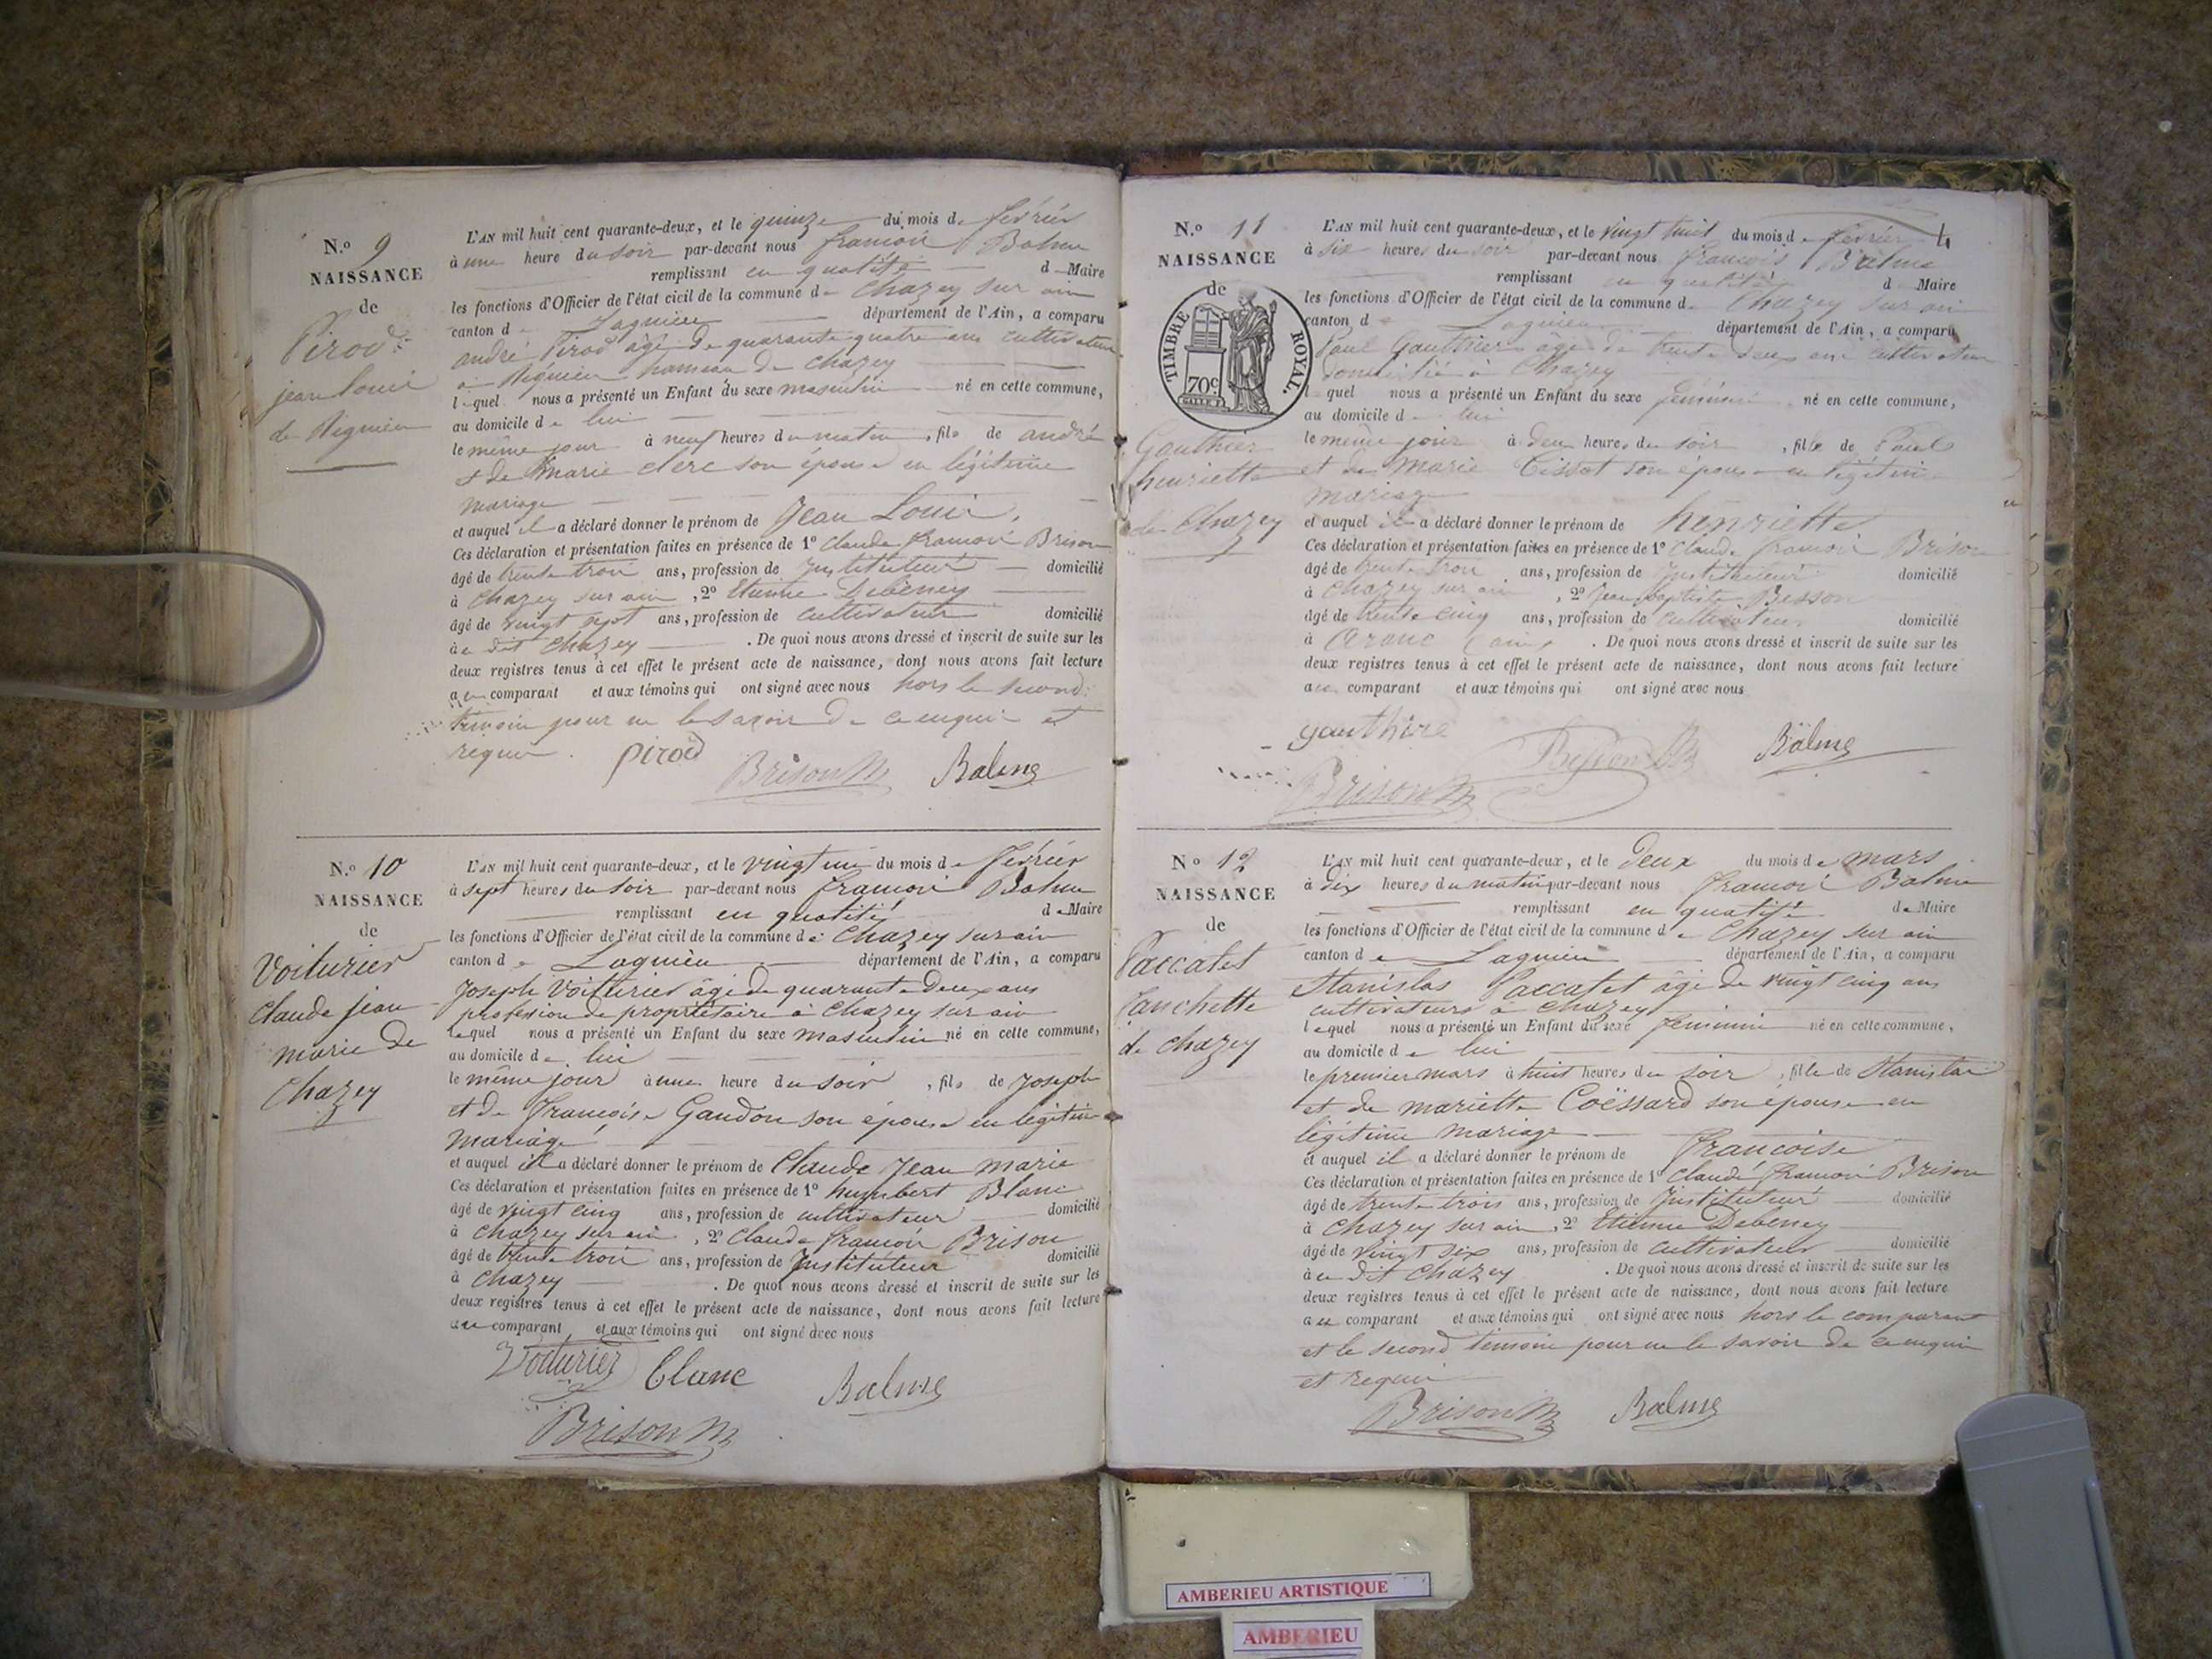 N.º 9
NAISSANCE
de
Pirod
jean louis
de Rignieu
L'AN mil huit cent quarante-deux, et le quinze du mois de février
à une heure du soir par-devant nous françois Balme
remplissant en qualité de Maire
les fonctions d'Officier de l'état civil de la commune de Chazey sur ain
canton de Lagnieu département de l'Ain, a comparu
andré Pirod âgé de quarante quatre ans cultivateur
a Rignieu hameau de Chazey
lequel nous a présenté un Enfant du sexe masculin né en cette commune,
au domicile de lui
le même jour à neuf heures du matin, fils de andré
et de Marie clerc son épouse en légitime
mariage
et auquel il a déclaré donner le prénom de Jean Louis.
Ces déclaration et présentation faites en présence de 1º Claude françois Brison
âgé de trente trois ans, profession de Instituteur domicilié
à Chazey sur ain, 2º Etienne Debeney
âgé de vingt sept ans, profession de cultivateur domicilié
à ce dit Chazey. De quoi nous avons dressé et inscrit de suite sur les
deux registres tenus à cet effet le présent acte de naissance, dont nous avons fait lecture
au comparant et aux témoins qui ont signé avec nous hors le second
témoin pour ne le savoir de ce enquis et
requis. pirod Brison Balme
N.º 10
NAISSANCE
de
Voiturier
Claude jean
marie de
Chazey
L'AN mil huit cent quarante-deux, et le vingt un du mois de février
à sept heures du soir par-devant nous françois Balme
remplissant en qualité de Maire
les fonctions d'Officier de l'état civil de la commune de Chazey sur ain
canton de Lagnieu département de l'Ain, a comparu
Joseph Voiturier âgé de quarante deux ans
profession de propriétaire à Chazey sur ain
lequel nous a présenté un Enfant du sexe masculin né en cette commune,
au domicile de lui
le même jour à une heure du soir, fils de Joseph
et de françoise Gaudon son épouse en légitime
mariage
et auquel il a déclaré donner le prénom de Claude Jean marie
Ces déclaration et présentation faites en présence de 1º humbert Blanc
âgé de vingt cinq ans, profession de cultivateur domicilié
à Chazey sur ain, 2º Claude françois Brison
âgé de trente trois ans, profession de Instituteur domicilié
à Chazey. De quoi nous avons dressé et inscrit de suite sur les
deux registres tenus à cet effet le présent acte de naissance, dont nous avons fait lecture
au comparant et aux témoins qui ont signé avec nous
Voiturier Blanc Balme
Brison
N.º 11
NAISSANCE
de
TIMBRE ROYAL.
70c
Gauthier
henriette
de Chazey
4
L'AN mil huit cent quarante-deux, et le vingt huit du mois de février
à six heures du soir par-devant nous françois Balme
remplissant en qualité d Maire
les fonctions d'Officier de l'état civil de la commune de Chazey sur ain
canton de Lagnieu département de l'Ain, a comparu
Paul Gauthier âgé de trente deux ans cultivateur
domicilié à Chazey
lequel nous a présenté un Enfant du sexe féminin né en cette commune,
au domicile de lui
le même jour à deux heures du soir, fille de Paul
et de marie Tissot son épouse en légitime
mariage
et auquel il a déclaré donner le prénom de henriette
Ces déclaration et présentation faites en présence de 1º Claude françois Brison
âgé de trente trois ans, profession de Instituteur domicilié
à Chazey sur ain, 2º Jean baptiste Besson
âgé de trente cinq ans, profession de cultivateur domicilié
à Aranc (ain). De quoi nous avons dressé et inscrit de suite sur les
deux registres tenus à cet effet le présent acte de naissance, dont nous avons fait lecture
au comparant et aux témoins qui ont signé avec nous
Besson Balme
Brison
Nº 12
NAISSANCE
de
Paccalet
de Chazey
L'AN mil huit cent quarante-deux, et le deux du mois de mars
à dix heures du matin par-devant nous françois Balme
remplissant en qualité de Maire
les fonctions d'Officier de l'état civil de la commune de Chazey sur ain
canton de Lagnieu département de l'Ain, a comparu
Stanislas Paccalet âgé de vingt cinq ans
cultivateur à Chazey
lequel nous a présenté un Enfant du sexe féminin né en cette commune,
au domicile de lui
le premier mars à huit heures du soir, fille de Stanislas
et de mariette Coëssard son épouse en
légitime mariage
et auquel il a déclaré donner le prénom de francoise
Ces déclaration et présentation faites en présence de 1º Claude françois Brison
âgé de trente trois ans, profession de Instituteur domicilié
à Chazey sur ain, 2º Etienne Debeney
âgé de vingt six ans, profession de cultivateur domicilié
à ce dit Chazey. De quoi nous avons dressé et inscrit de suite sur les
deux registres tenus à cet effet le présent acte de naissance, dont nous avons fait lecture
au comparant et aux témoins qui ont signé avec nous hors le comparant
et le second témoin pour ne le savoir de ce enquis
et requis
Brison Balme
AMBERIEU ARTISTIQUE
AMBERIEU